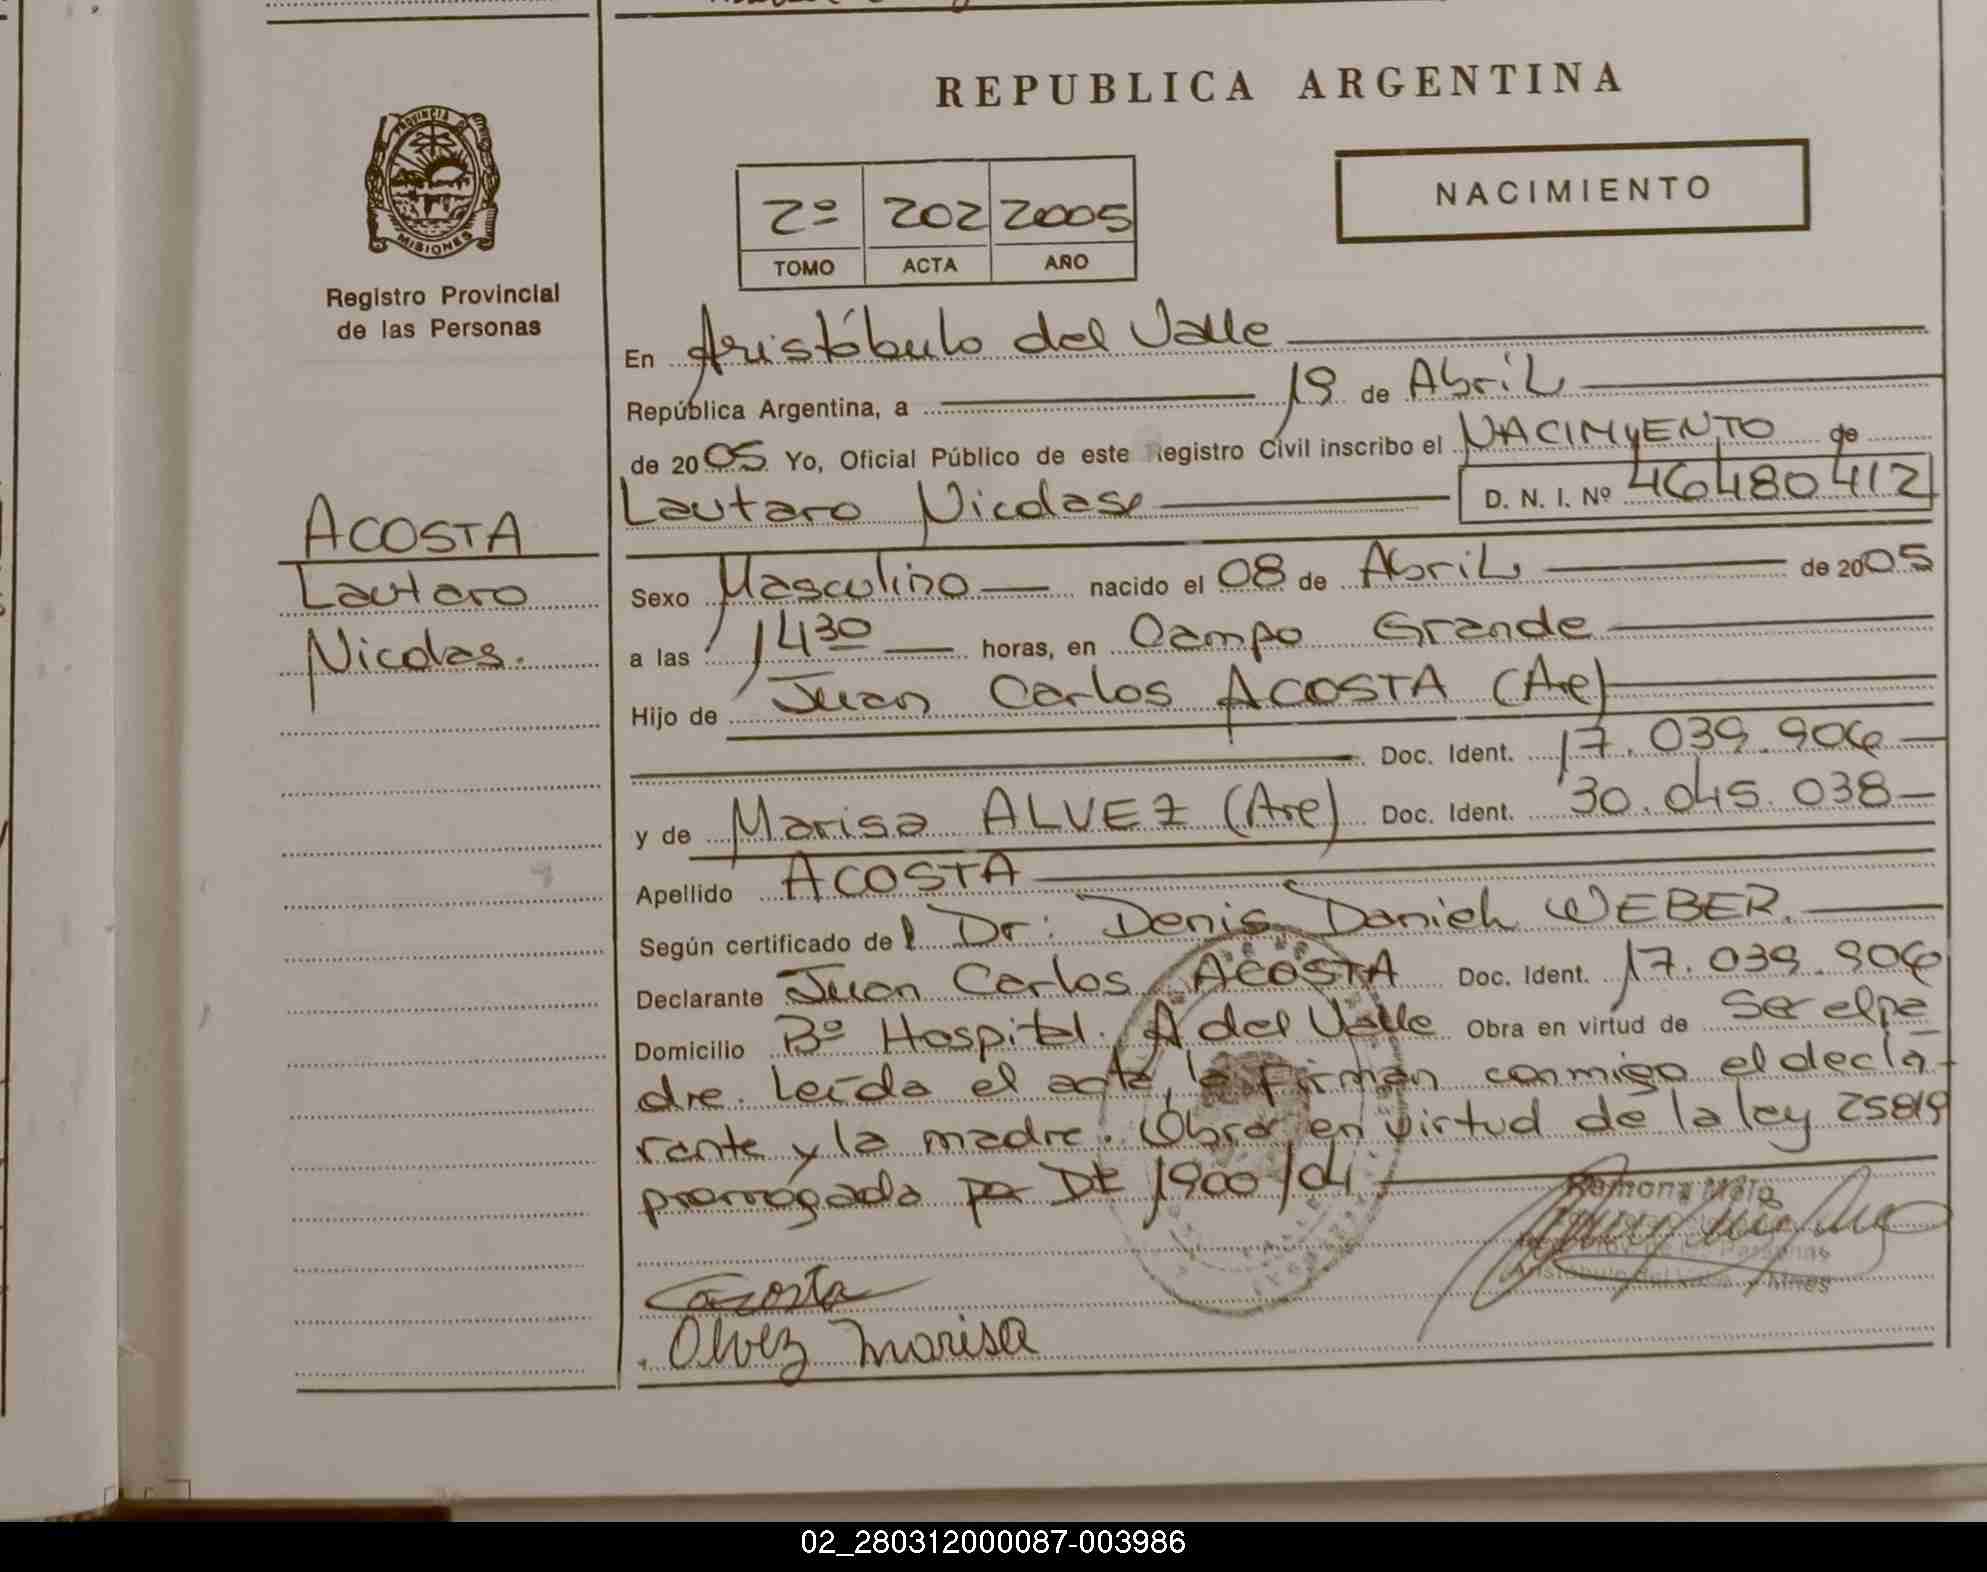 REPUBLICA ARGENTINA
PROVINCIA DE
MISIONES
Registro Provincial
de las Personas
NACIMIENTO
2º 202 2005
TOMO ACTA AÑO
En Aristóbulo del Valle
República Argentina, a 19 de Abril
de 2005 Yo, Oficial Público de este Registro Civil inscribo el NACIMYENTO de
Lautaro Nicolas D. N. I. Nº 46480412
ACOSTA
Lautaro
Nicolas.
Sexo Masculino nacido el 08 de Abril de 2005
a las 14 30 horas, en Campo Grande
Hijo de Juan Carlos ACOSTA (Are)
Doc. Ident. 17.039.906
y de Marisa ALVEZ (Are) Doc. Ident. 30.045.038
Apellido ACOSTA
Según certificado del Dr: Denis Daniel WEBER.
Declarante Juan Carlos ACOSTA Doc. Ident. 17.039.906
Domicilio Bº Hospital. A del Valle Obra en virtud de Ser el pa
dre. Leída el acta, la firman conmigo el decla-
rante y la madre. Obra en virtud de la ley 25819
prorrogada por Dt 1900/04
Ramona
de las Personas
Aristóbulo del Valle - Mnes
Acosta
Alvez Marisa
02_280312000087-003986